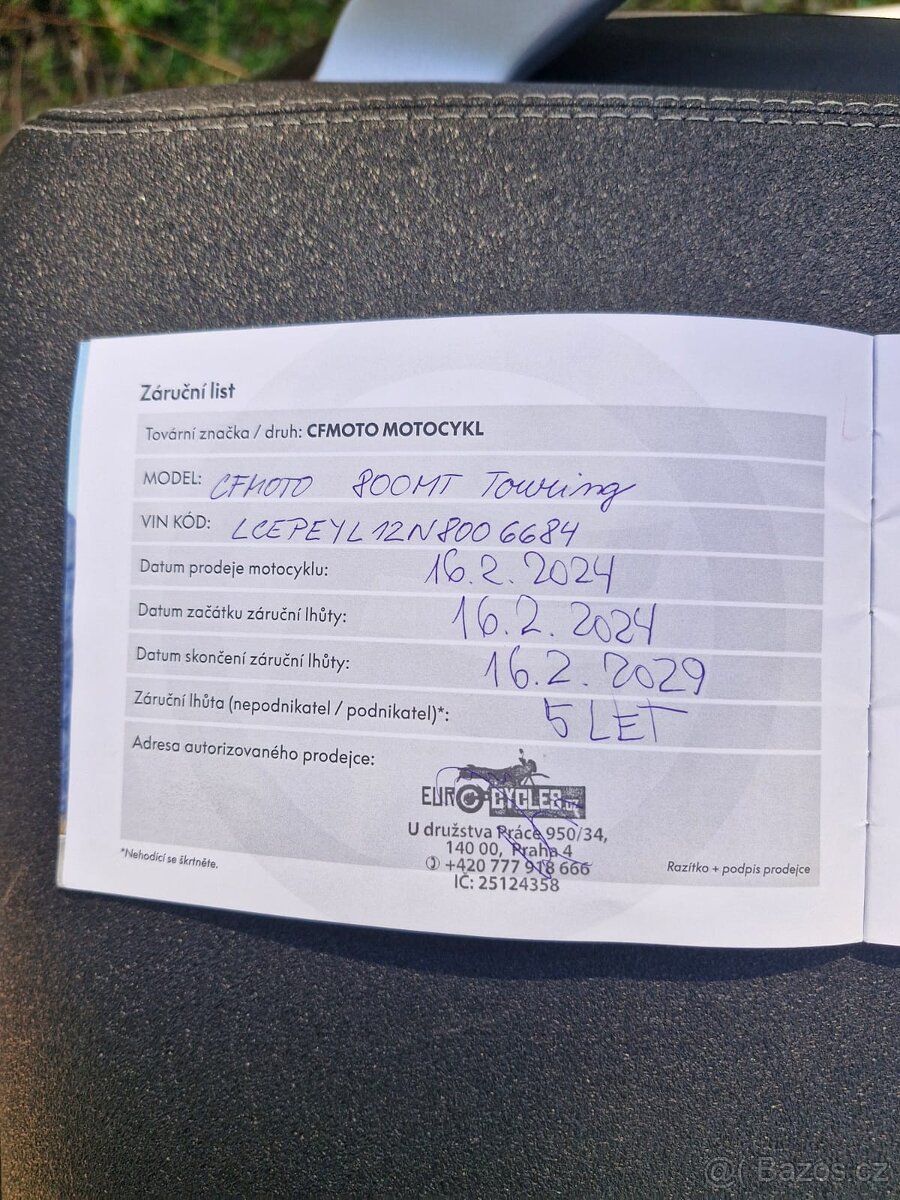 Záruční list
Tovární značka / druh: CFMOTO MOTOCYKL
MODEL: CFMOTO 800MT Touring
VIN KÓD: LCEPEYL12N8006684
Datum prodeje motocyklu: 16.2.2024
Datum začátku záruční lhůty: 16.2.2024
Datum skončení záruční lhůty: 16.2.2029
Záruční lhůta (nepodnikatel / podnikatel)*: 5 LET
Adresa autorizovaného prodejce:
EURO-CYCLES.cz
U družstva Práce 950/34,
140 00, Praha 4
+420 777 918 666
IČ: 25124358
*Nehodící se škrtněte.
Razítko + podpis prodejce
@( Bazos.cz